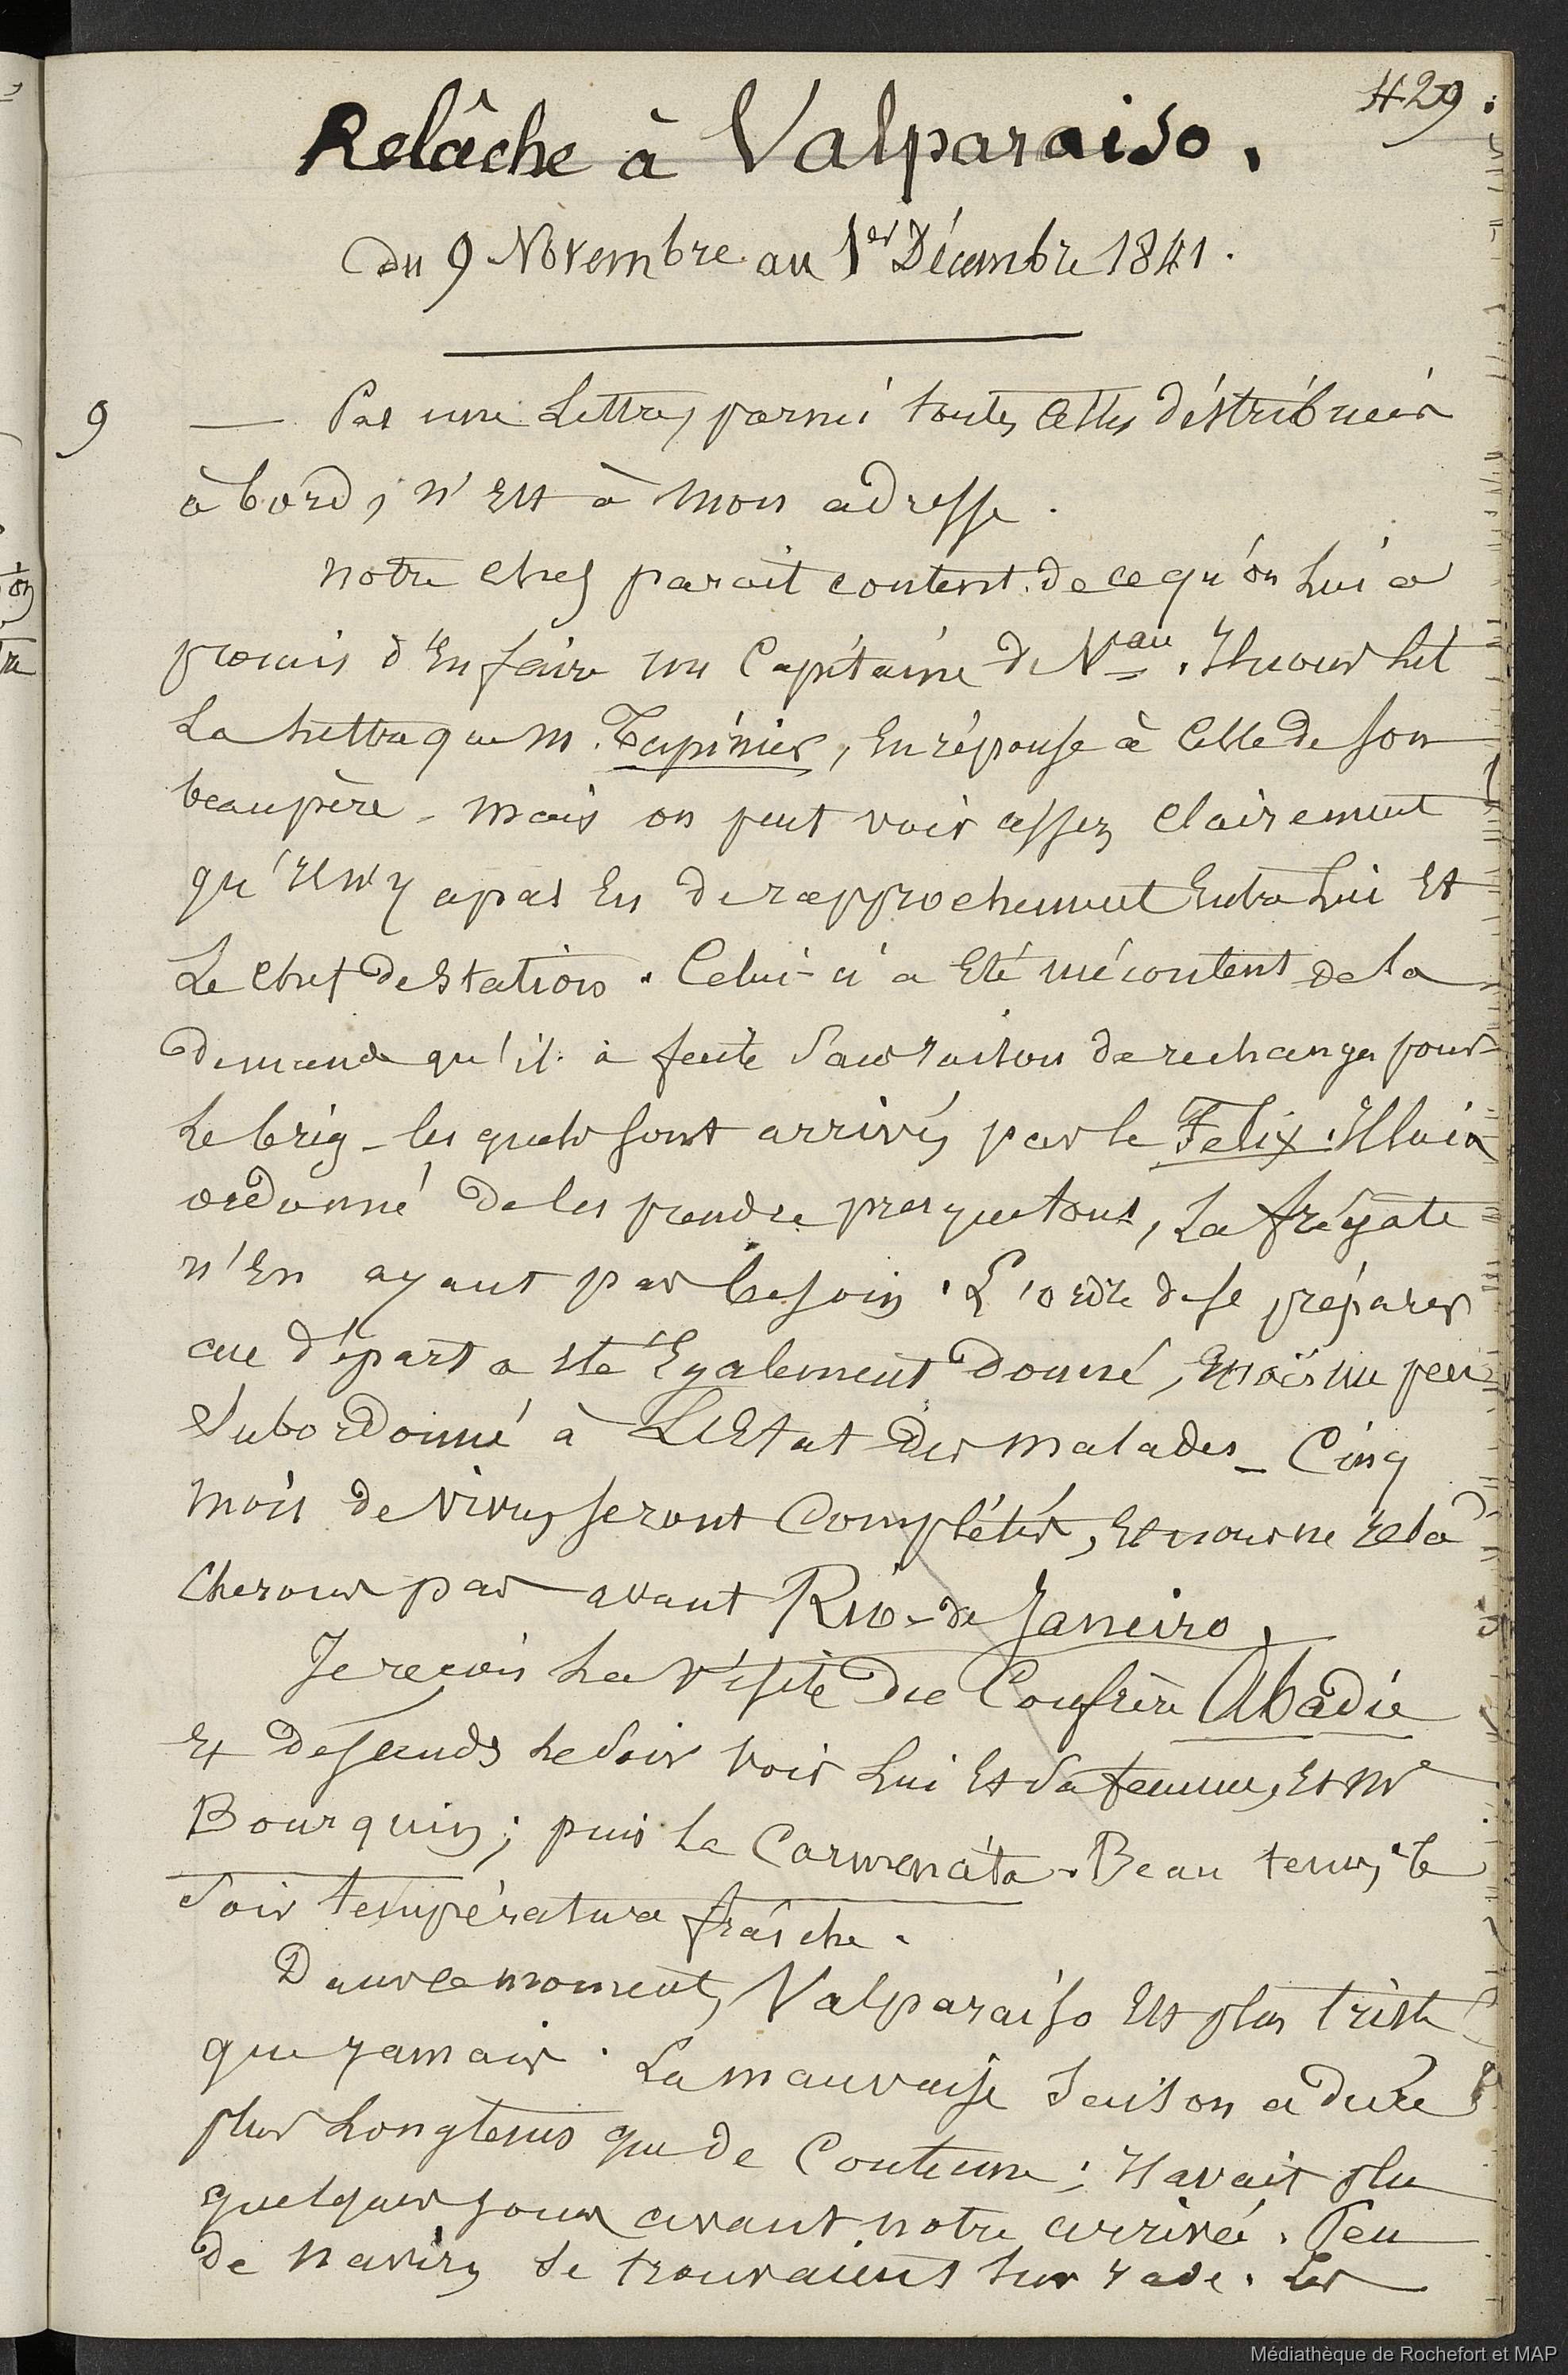 429.
Relâche à Valparaiso.
du 9 Novembre au 1er Décembre 1841.
9 — Pas une Lettre, parmi toutes Celles distribuées
à bord, n'Est à mon adresse.
notre chef parait content de ce qu'on Lui a
promis d'En faire un Capitaine de Vau. Il nous Lit
La Lettre que M. Tupinier, En réponse à Celle de son
beaupère - mais on peut voir assez clairement
qu'Il n'y a pas Eu de rapprochement Entre Lui Et
Le chef de Station. Celui-ci a Eté mécontent de la
demande qu'il à faite Sans raison de rechanges pour
Le brig - les quels sont arrivés par le Felix. Il lui a
ordonné de les prendre presque tous, La frégate
n'En ayant pas besoin. L'ordre de se préparer
au départ a Eté Egalement donné, Mais un peu
Subordonné à L'Etat des malades_ Cinq
mois de vivres seront Complétés, Et nous ne rela
cherons pas avant Rio-de Janeiro.
Je reçois La visite du Confrère Abadie
Et descends Le Soir voir Lui Et Sa femme, Et Mr
Bourquin; puis La Carmenata. Beau tems, le
Soir température fraîche.
Dans ce moment, Valparaiso Est plus triste
que jamais. La mauvaise Saison a duré
plus Longtems que de Coutume; Il avait plu
quelques jours avant notre arrivée. Peu
de navires se trouvaient Sur rade. Les
Médiathèque de Rochefort et MAP